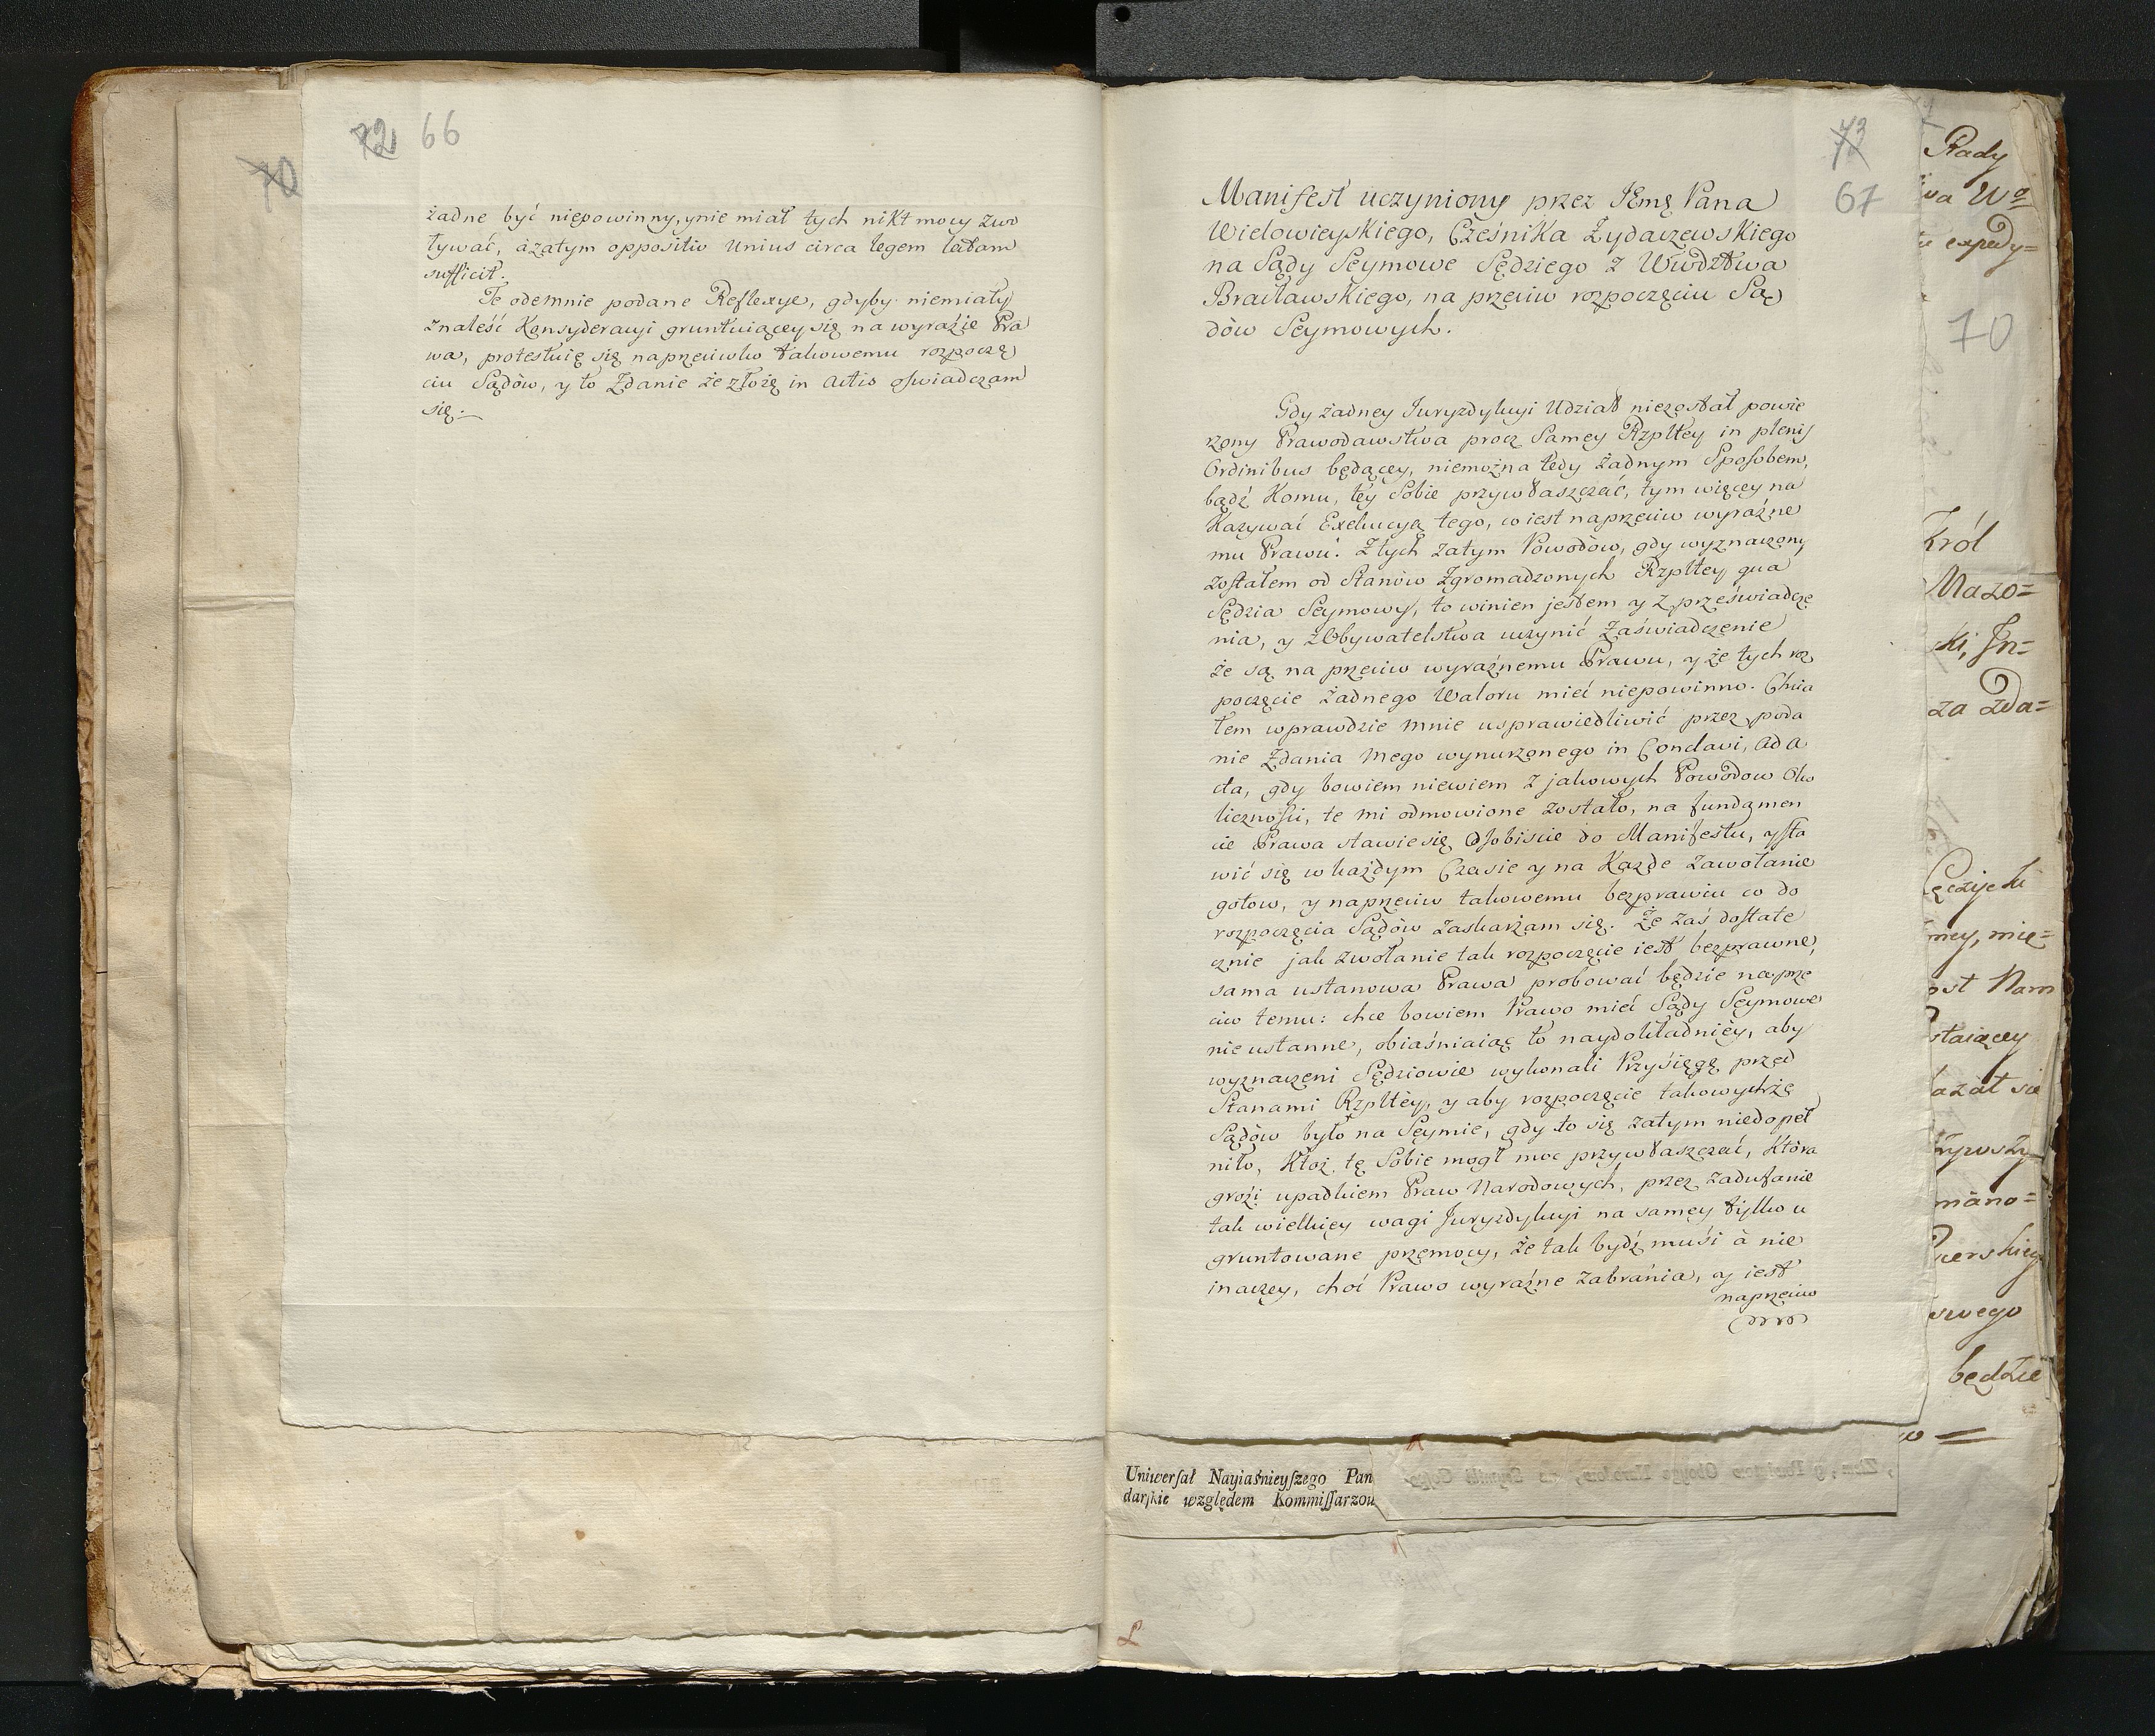 70
72 66
żadne być niepowinny, ynie miał tych nikt mocy zwo
ływać, àzatym oppositio unius circa legem latam
sufficit.
Te odemnie podane Reflexye, gdyby niemiały
znaleść Konsyderacyi gruntuiącey się na wyraźie Pra
wa, protestuię się naprzeciwko takowemu rozpoczę
ciu Sądów, y to Zdanie że złożę in Actis oswiadczam
się.
73
67
Manifest uczyniony przez JEmę Pana
Wielowieyskiego, Cześnika Żydaczewskiego
na Sądy Seymowe Sędziego z Wwdztwa
Bracławskiego, na przeciw rozpoczęciu Są
dów Seymowych.
Gdy żadney Juryzdykcyi Udział niezostał powie
rzony Prawodawstwa procz Samey Rzpltey in plenis
Ordinibus będącey, niemożna tedy żadnym Sposobem,
bądź Komu, tey Sobie przywłaszczać, tym więcey na
kazywać Exekucyą tego, co iest naprzeciw wyraźne
mu Prawu. Ztych zatym Powodów, gdy wyznaczony
zostałem od Stanów Zgromadzonych Rzpltey qua
Sędzia Seymowy, to winien jestem y z przeświadcze
nia, y z Obywatelstwa uczynić Zaświadczenie
że są na przeciw wyraźnemu Prawu, y że tych roz
poczęcie żadnego Waloru mieć niepowinno. Chcia
łem wprawdzie mnie usprawiedliwić przez poda
nie Zdania mego wynurzonego in Conclavi, ad A
cta, gdy bowiem niewiem z jakowych Powodow Oko
liczności, te mi odmowione zostało, na fundamen
cie Prawa stawię się Osobiscie do Manifestu, y sta
wić się wkażdym Czasie y na Każde zawołanie
gotow, y naprzeciw takowemu bezprawiu co do
rozpoczęcia Sądów zaskarżam się. Że zaś dostate
cznie jak zwołanie tak rozpoczęcie iest bezprawne,
sama ustanowa Prawa probować będzie na prze
ciw temu: chce bowiem Prawo mieć Sądy Seymowe
nieustanne, obiaśniaiąc to naydokładniey, aby
wyznaczeni Sędziowie wykonali Przysięgę przed
Stanami Rzpltey, y aby rozpoczęcie takowychże
Sądów było na Seymie, gdy to się zatym niedopeł
niło, Ktoż tę Sobie mogł moc przywłaszczać, Która
grozi upadkiem Praw Narodowych, przez zadufanie
tak wielkiey wagi Juryzdykcyi na samey tylko u
gruntowane przemocy, że tak bydź muśi à nie
inaczey, choć Prawo wyraźne zabrania, y iest
naprzeciw
Rady
expedy=
70
Król
Mazo=
ki, Jn=
za zda=
mey, mię=
Nam
azał sie
swego
będzie
Uniwersał Nayiaśnieyszego Pan
darskie względem Kommissarzow